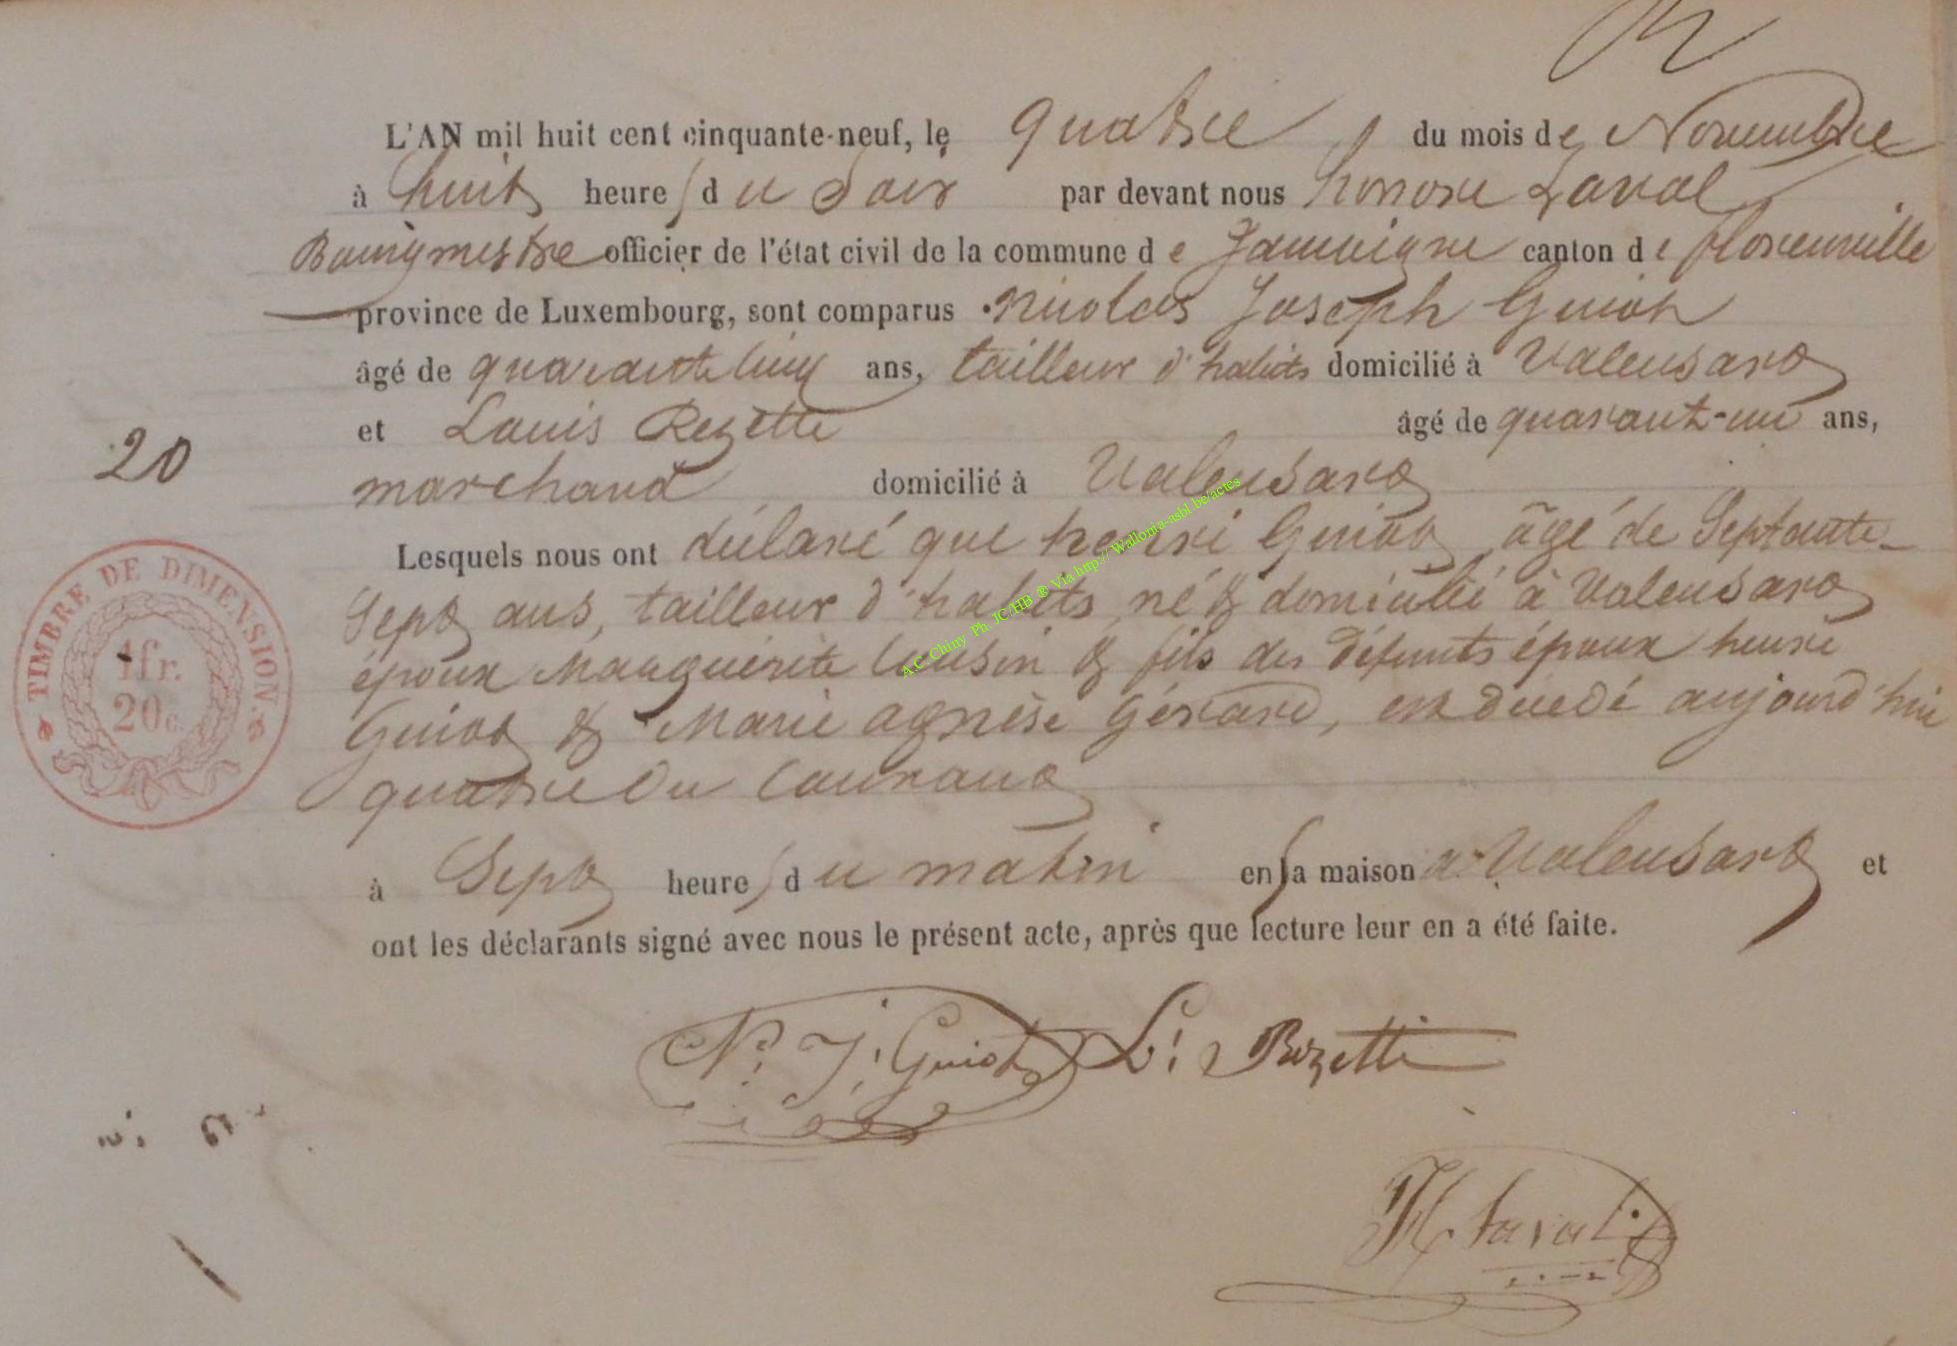 L'AN mil huit cent cinquante-neuf, le quatre du mois de Novembre
à huit heures du Soir par devant nous honoré Laval
Bourgmestre officier de l'état civil de la commune de Jamoigne canton de florenville
province de Luxembourg, sont comparus Nicolas Joseph Guiot
âgé de quarante cinq ans, tailleur d'habits domicilié à Valensart
et Louis Rezette âgé de quarant-un ans,
20
marchand domicilié à Valensart
Lesquels nous ont déclaré que henri Guiot, âgé de Septante-
Sept ans, tailleur d'habits, né & domicilié à Valensart
époux Marguérite & fils des défunts époux henri
Guiot & Marie agnèse Gérard, est décédé aujourd'hui
quatre du Courant
à Sept heures du matin en sa maison à Valensart et
ont les déclarants signé avec nous le présent acte, après que lecture leur en a été faite.
N. J. Guiot L. Rezette
H. Laval
TIMBRE DE DIMENSION.
1fr.
20c.
A.C. Chiny Ph JC/HB ® Via http:// Wallonia-asbl.be/actes